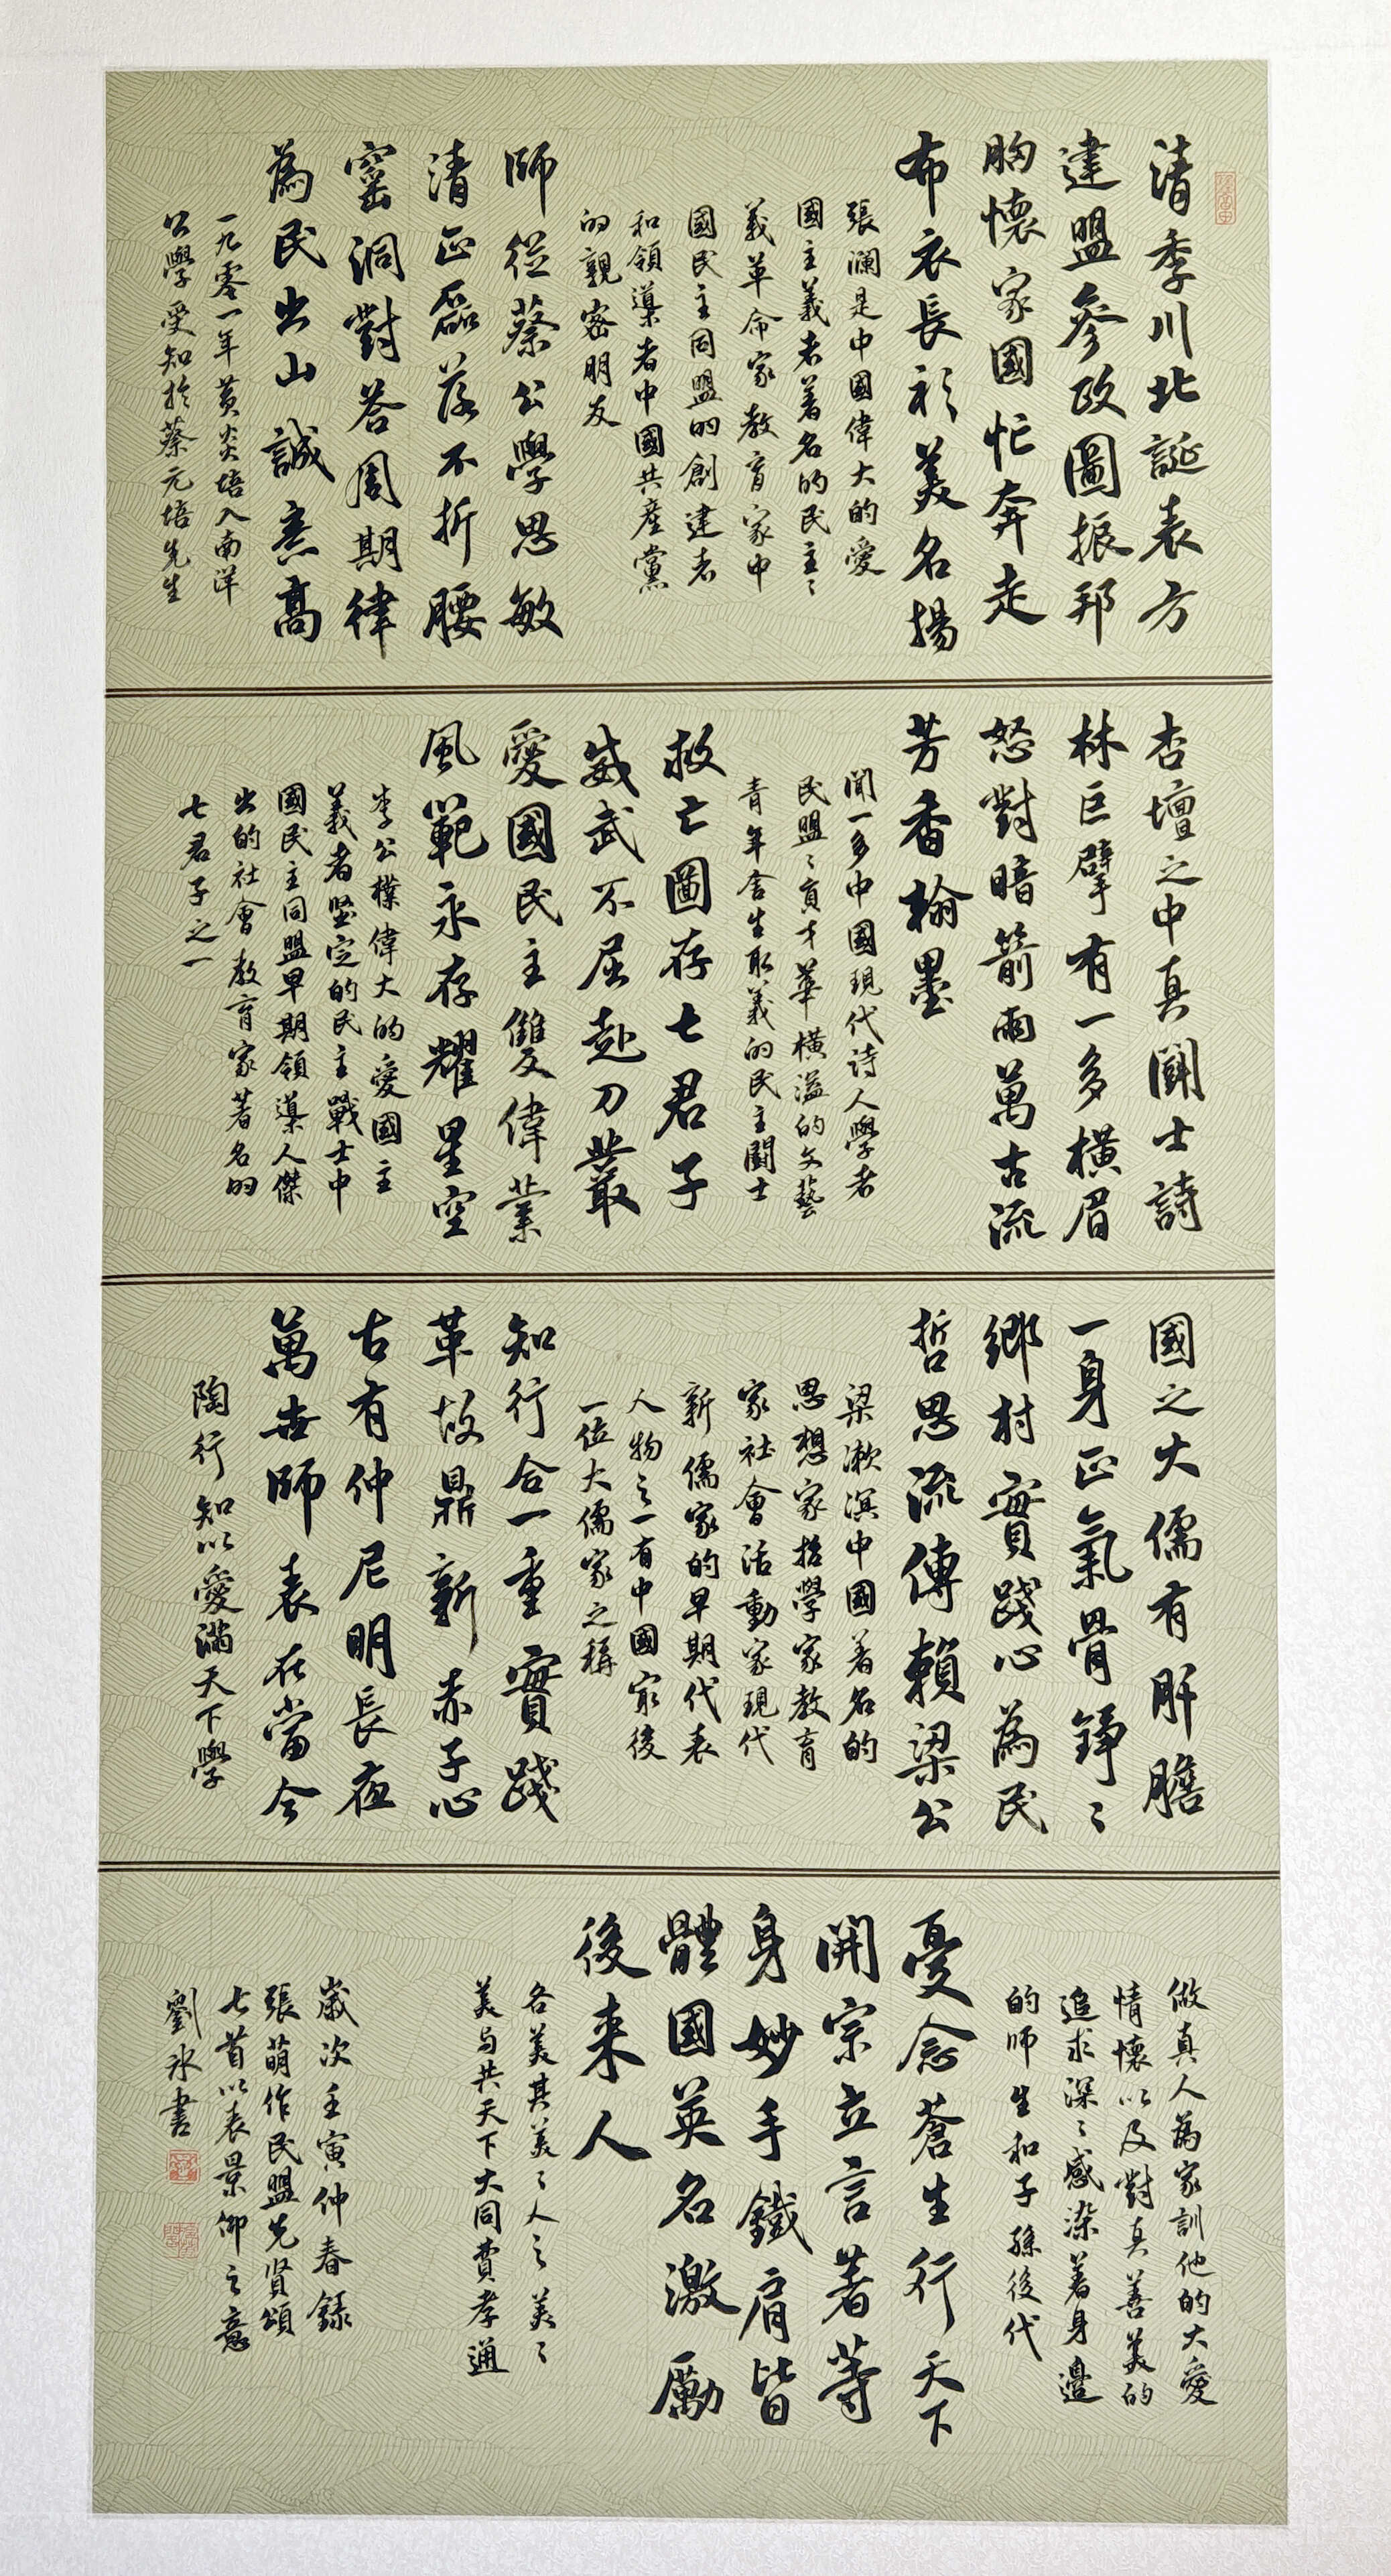 清季川北誕表方
建盟參政圖振邦
胸懷家國忙奔走
布衣長衫美名揚
張瀾是中國偉大的愛
國主義者著名的民主〻
義革命家教育家中
國民主同盟的創建者
和領導者中國共產黨
的親密朋友
師從蔡公學思敏
清正磊落不折腰
窯洞對答周期律
為民出山誠意高
一九零一年黃炎培入南洋
公學受知於蔡元培先生
杏壇之中真鬪士詩
林巨擘有一多橫眉
怒對暗箭雨萬古流
芳香翰墨
聞一多中國現代诗人學者
民盟〻員才華橫溢的文藝
青年舍生取義的民主鬪士
救亡圖存七君子
威武不屈赴刀叢
愛國民主雙偉業
風範永存耀星空
李公樸偉大的愛國主
義者堅定的民主戰士中
國民主同盟早期領導人傑
出的社會教育家著名的
七君子之一
國之大儒有肝膽
一身正氣骨錚〻
鄉村實踐心為民
哲思流傳賴梁公
梁漱溟中國著名的
思想家哲學家教育
家社會活動家現代
新儒家的早期代表
人物之一有中國家後
一位大儒家之稱
知行合一重實踐
革故鼎新赤子心
古有仲尼明長夜
萬世師表在當今
陶行知以愛滿天下學
做真人為家訓他的大愛
情懷以及對真善美的
追求深〻感染著身邊
的師生和子孫後代
憂念蒼生行天下
開宗立言著等
身妙手鐵肩皆
體國英名激勵
後来人
各美其美〻人之美〻
美与共天下大同費孝通
歲次壬寅仲春錄
張萌作民盟先賢頌
七首以表景仰之意
劉冰書